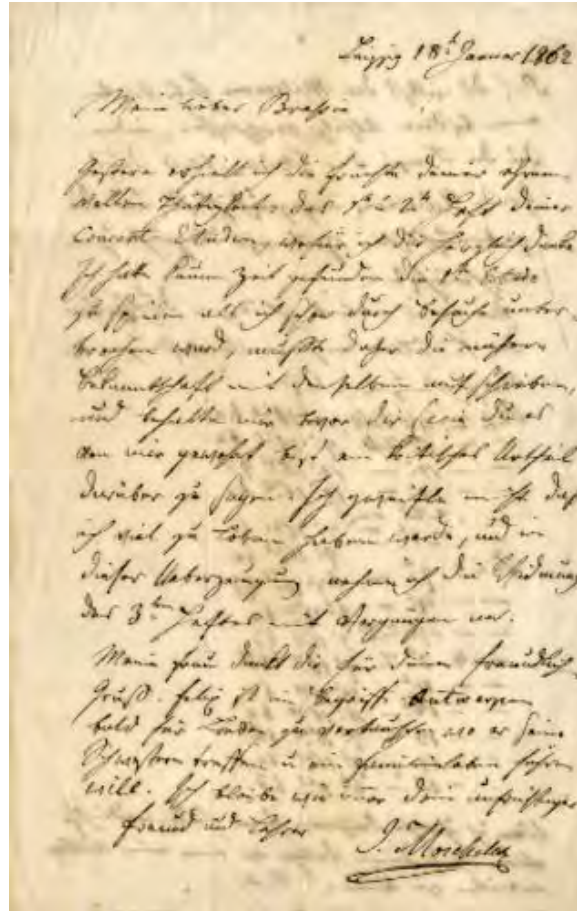 Leipzig 18t Januar 1862
Mein lieber Brassin
Gestern erhielt ich die Früchte deiner ehren-
vollen Thätigkeit, das 1te u 2te Heft deiner
Concert Etuden, wofür ich dir herzlich danke
Ich habe kaum Zeit gefunden die 1te Etude
zu spielen als ich schon durch Besuche unter-
brochen ward, mußte daher die nähere
Bekanntschaft mit denselben aufschieben,
und behalte mir bevor dir wie du es
von mir gewohnt bist ein kritisches Urtheil
darüber zu sagen. Ich zweifle nicht daß
ich viel zu loben haben werde, und in
dieser Ueberzeugung nehme ich die Widmung
des 3ten Heftes mit Vergnügen an.
Meine Frau dankt dir für deinen freundlichen
Gruß. Felix ist im Begriff Antwerpen
bald für London zu vertauschen wo er seine
Schwestern treffen u ein Familienleben führen
will. Ich bleibe wie immer dein aufrichtiger
Freund und Lehrer
J. Moscheles